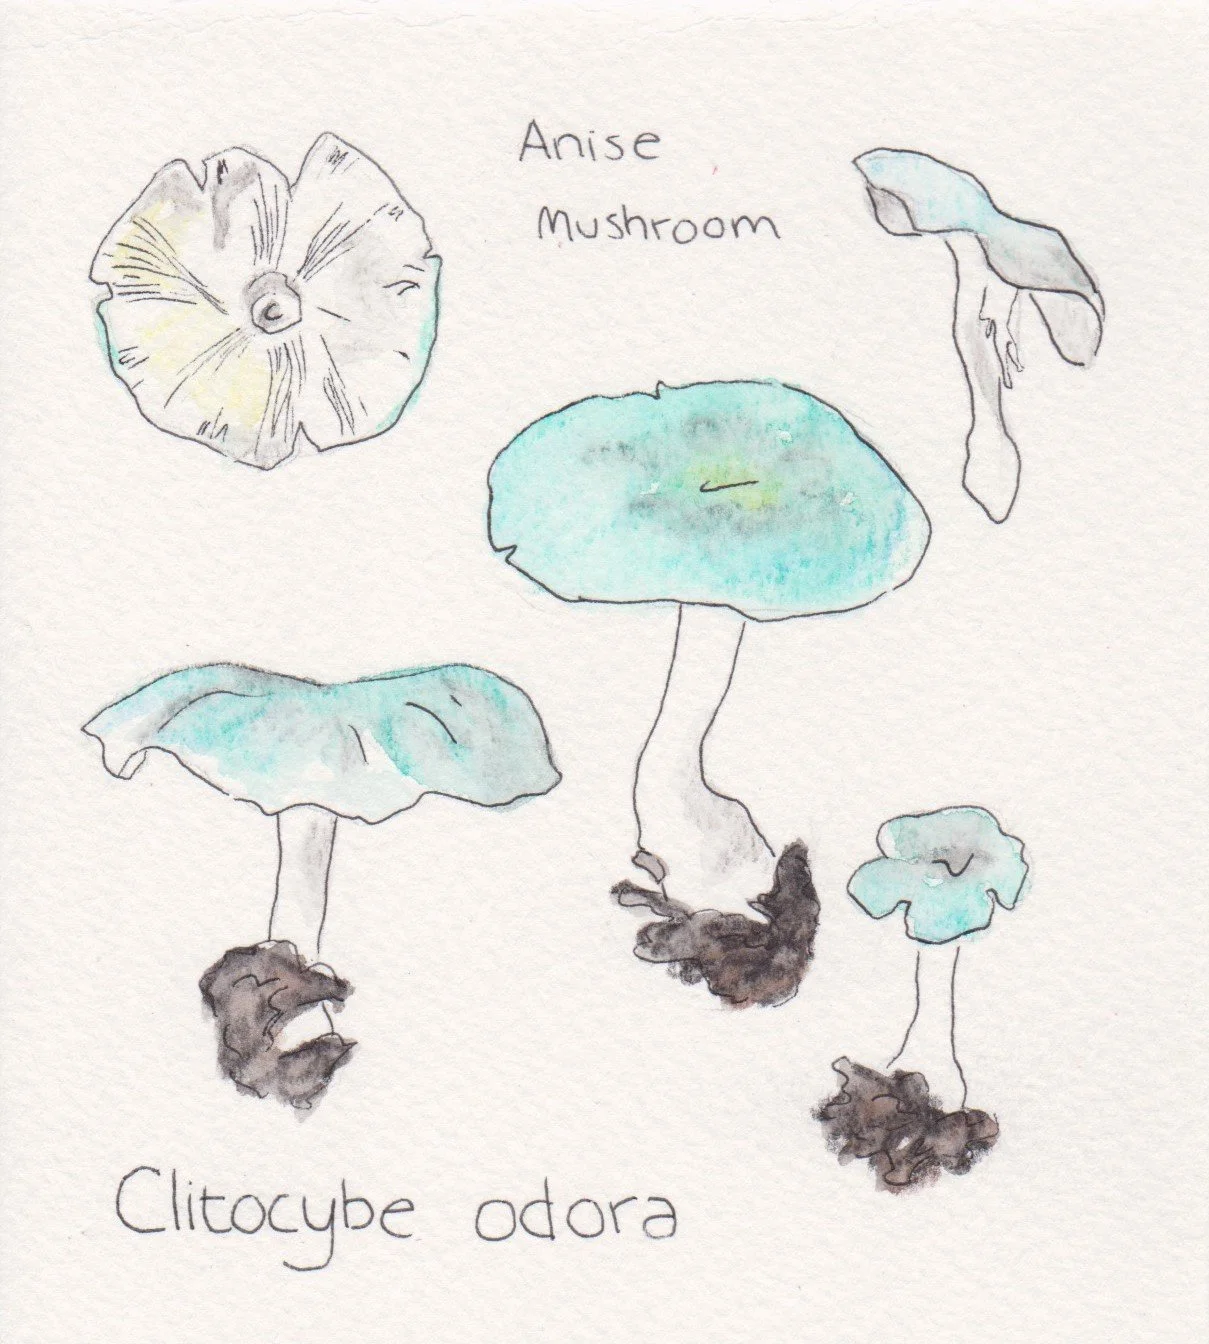 Anise
Mushroom
Clitocybe odora